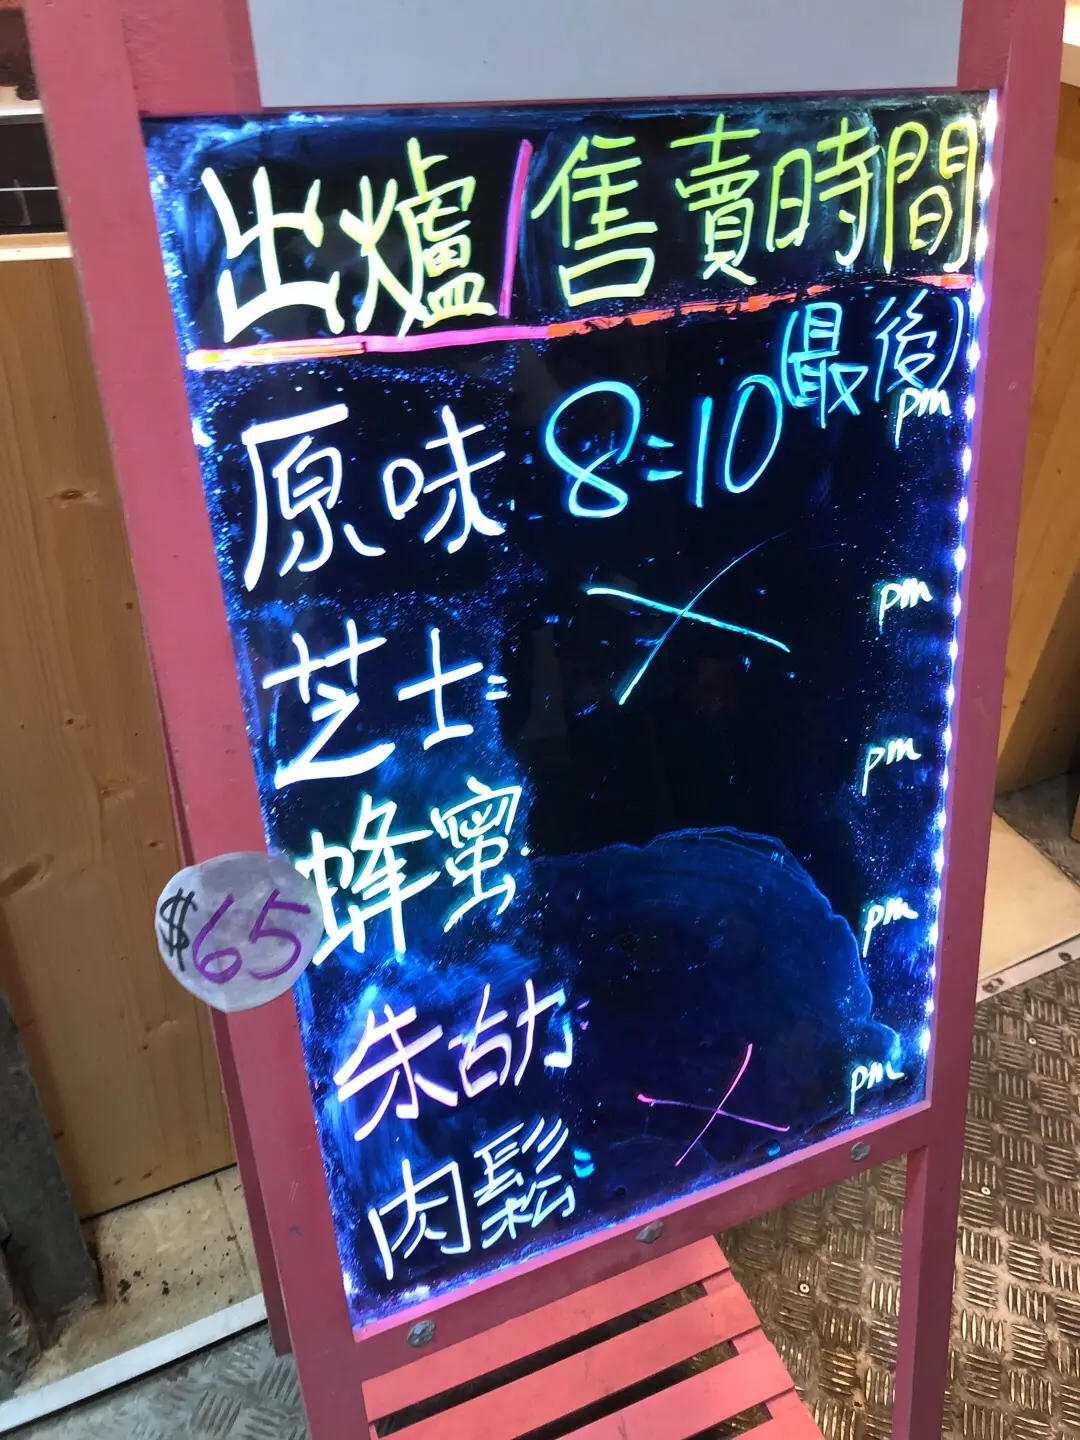 出爐/售賣時間
原味 8:10(最後) pm
芝士 pm
蜂蜜 pm
$65
朱古力 pm
肉鬆 pm